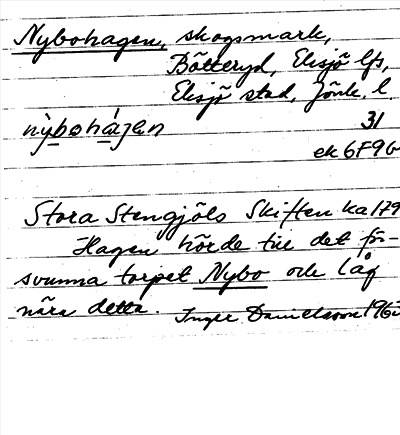 Nybohagen, skogsmark,
Bötteryd, Eksjö lfs,
Eksjö stad, Jönk. l.
nỳbohá̱gen 31
ek 6F9G
Stora Stengjöls Skiften ka 179
Hagen hörde till det för-
svunna torpet Nybo och låg
nära detta. Inger Danielsson